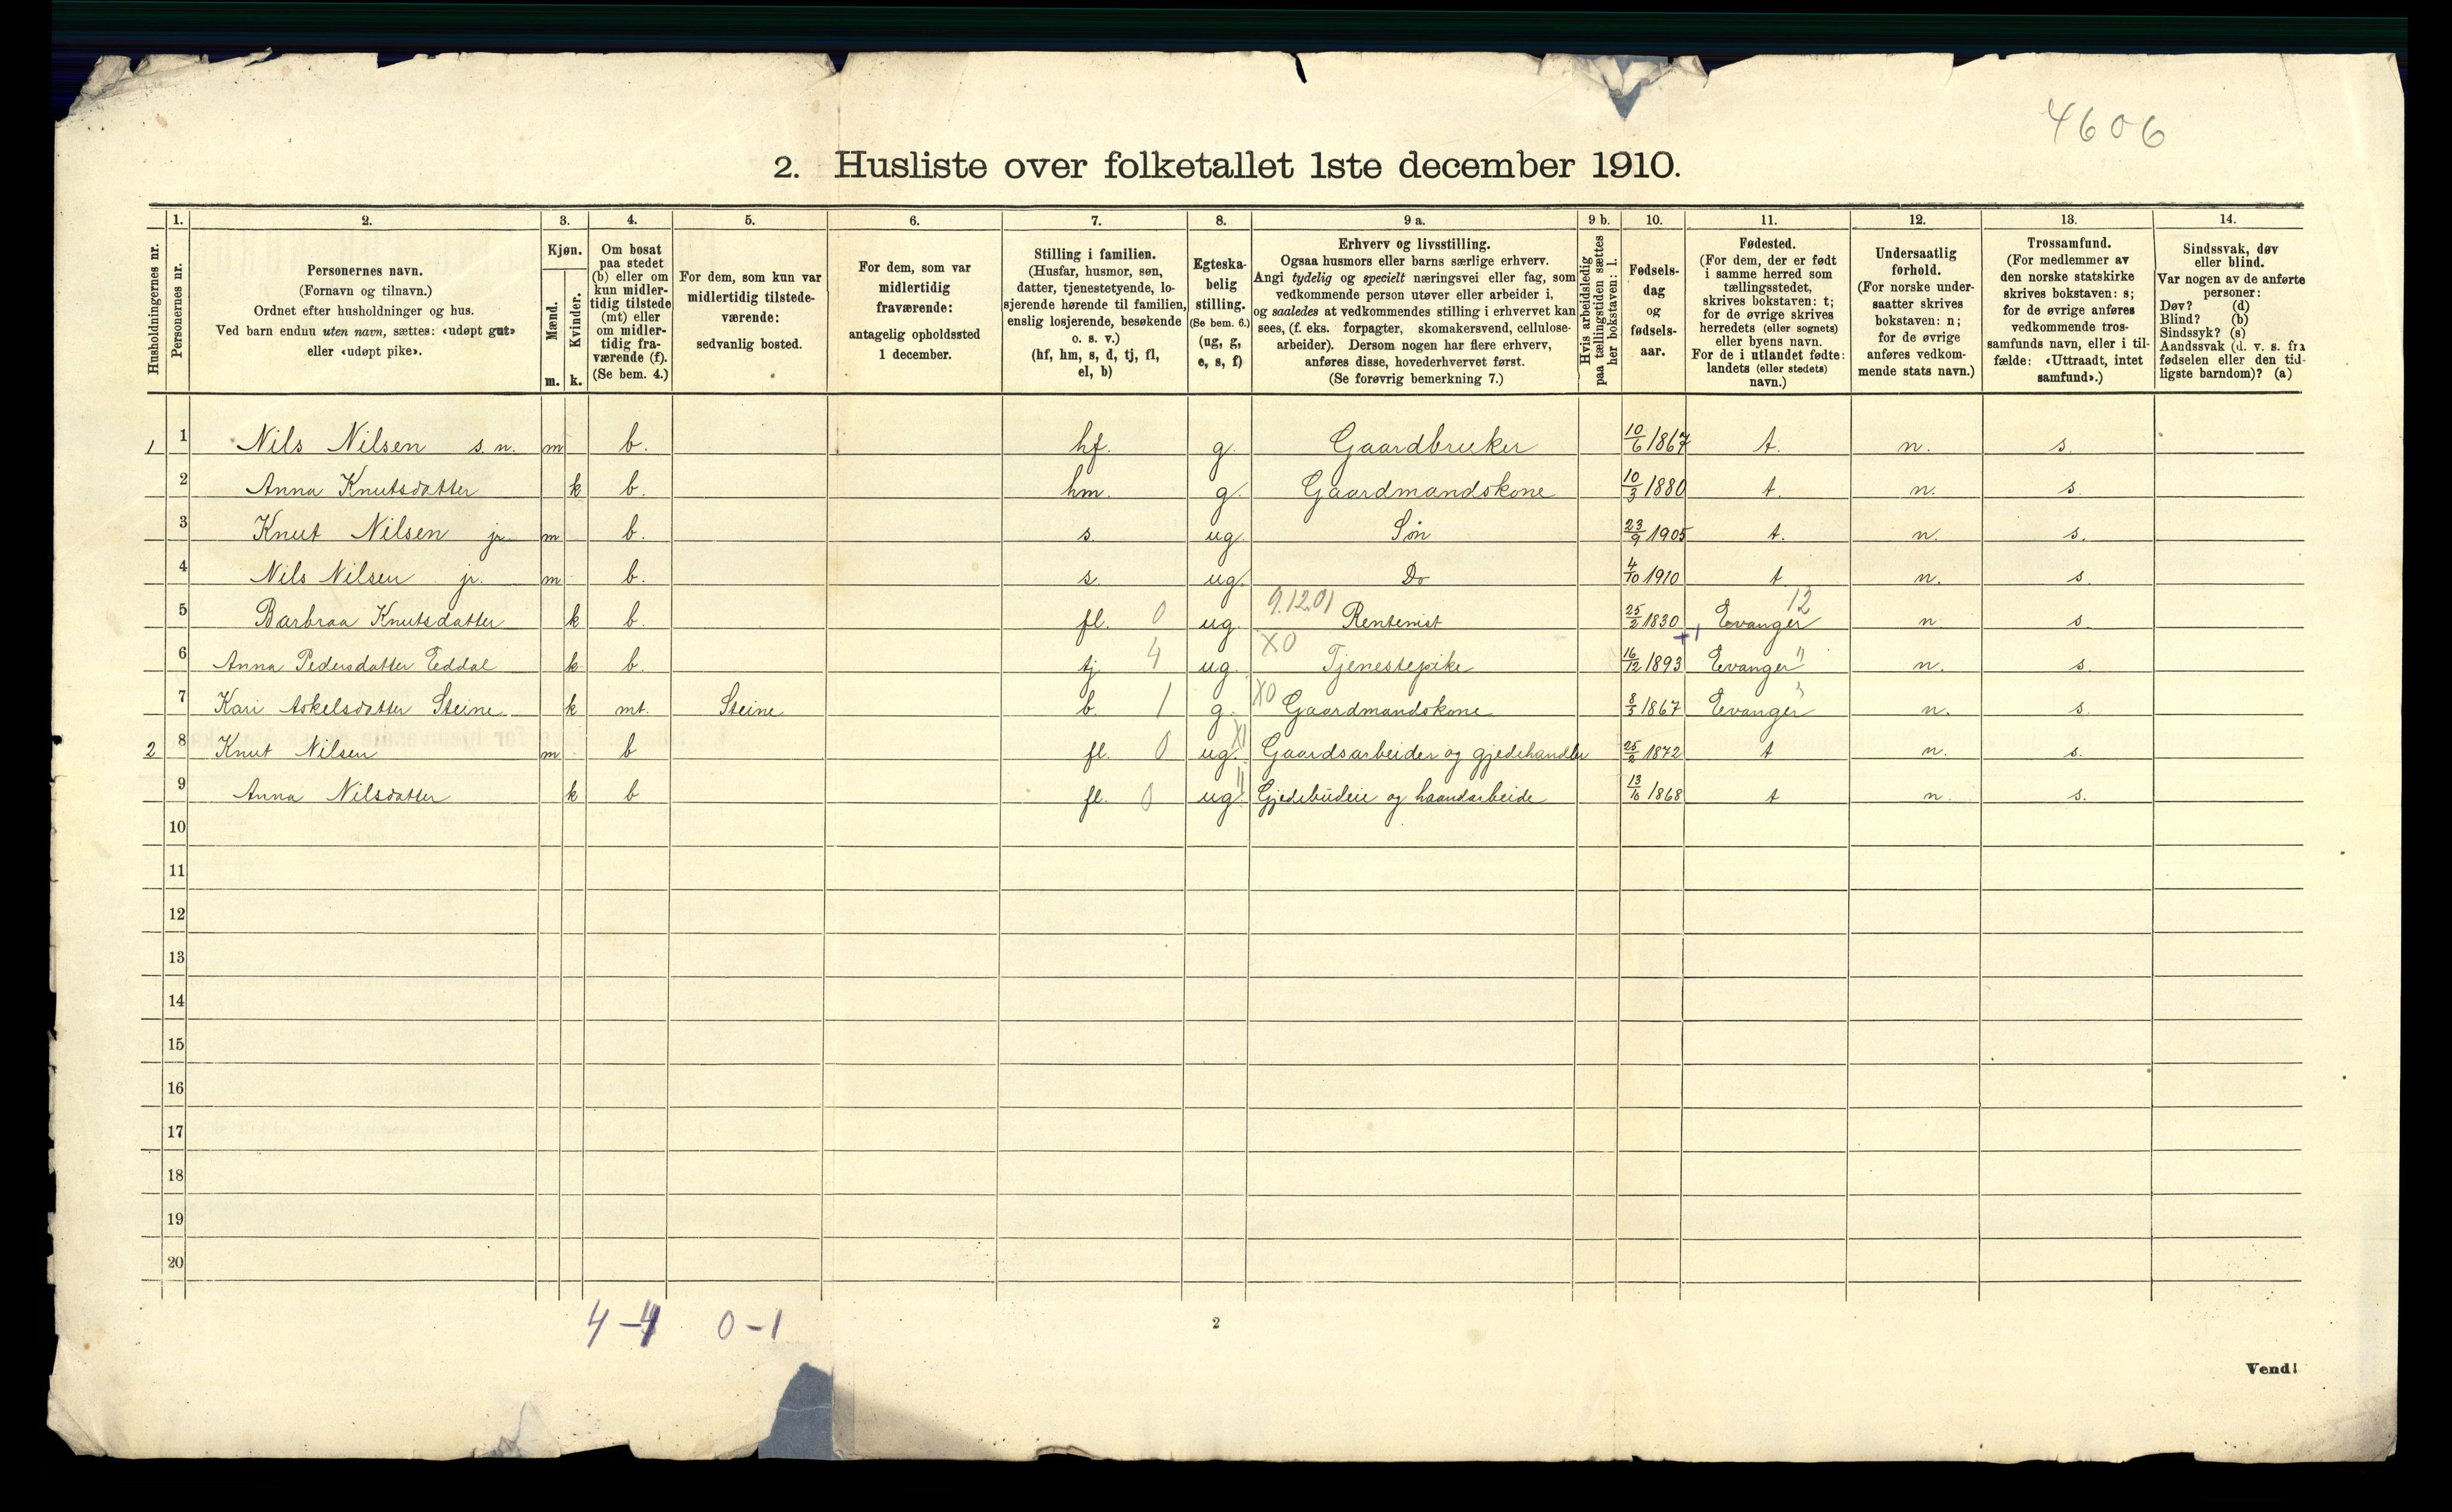 4606
2. Husliste over folketallet 1ste december 1910.
Husholdningernes nr.
1.
Personernes nr.
2.
Personernes navn.
(Fornavn og tilnavn.)
Ordnet efter husholdninger og hus.
Ved barn endnu uten navn, sættes: «udøpt gut»
eller «udøpt pike».
3.
Kjøn.
Mænd.
m.
Kvinder.
k.
4.
Om bosat
paa stedet
(b) eller om
kun midler-
tidig tilstede
(mt) eller
om midler-
tidig fra-
værende (f).
(Se bem. 4.)
5.
For dem, som kun var
midlertidig tilstede-
værende:
sedvanlig bosted.
6.
For dem, som var
midlertidig
fraværende:
antagelig opholdssted
1 december.
7.
Stilling i familien.
(Husfar, husmor, søn,
datter, tjenestetyende, lo-
sjerende hørende til familien,
enslig losjerende, besøkende
o. s. v.)
(hf, hm, s, d, tj, fl,
el, b)
8.
Egteska-
belig
stilling.
(Se bem. 6.)
(ug, g,
e, s, f)
9 a.
Erhverv og livsstilling.
Ogsaa husmors eller barns særlige erhverv.
Angi tydelig og specielt næringsvei eller fag, som
vedkommende person utøver eller arbeider i,
og saaledes at vedkommendes stilling i erhvervet kan
sees, (f. eks. forpagter, skomakersvend, cellulose-
arbeider). Dersom nogen har flere erhverv,
anføres disse, hovederhvervet først.
(Se forøvrig bemerkning 7.)
9 b.
Hvis arbeidsledig
paa tællingstiden sættes
her bokstaven: l.
10.
Fødsels-
dag
og
fødsels-
aar.
11.
Fødested.
(For dem, der er født
i samme herred som
tællingsstedet,
skrives bokstaven: t;
for de øvrige skrives
herredets (eller sognets)
eller byens navn.
For de i utlandet fødte:
landets (eller stedets)
navn.)
12.
Undersaatlig
forhold.
(For norske under-
saatter skrives
bokstaven: n;
for de øvrige
anføres vedkom-
mende stats navn.)
13.
Trossamfund.
(For medlemmer av
den norske statskirke
skrives bokstaven: s;
for de øvrige anføres
vedkommende tros-
samfunds navn, eller i til-
fælde: «Uttraadt, intet
samfund».)
14.
Sindssvak, døv
eller blind.
Var nogen av de anførte
personer:
Døv? (d)
Blind? (b)
Sindssyk? (s)
Aandssvak (d. v. s. fra
fødselen eller den tid-
ligste barndom)? (a)
1 1 Nils Nilsen s. n. m b. hf. g. Gaardbruker 10/6 1867 t. n. s.
2 Anna Knutsdatter k b. hm. g. Gaardmandskone 10/3 1880 t. n. s.
3 Knut Nilsen jr. m b. s. ug Søn 23/9 1905 t. n. s.
4 Nils Nilsen jr. m b. s. ug. Do 4/10 1910 t n. s.
9.12.01 12
5 Barbraa Knutsdatter k b. fl. 0 ug. Rentenist 25/2 1830 Evanger n s
X0 +1
6 Anna Pedersdatter Eddal k b. tj 4 ug. Tjenestepike 16/12 1893 Evanger " n. s.
7 Kari Askelsdatter Steine k mt. Steine b. 1 g. X0 Gaardmandskone 8/3 1867 Evanger " n. s.
2 8 Knut Nilsen m b fl. 0 ug. Gaardsarbeider og gjedehandler 25/2 1872 t n. s.
9 Anna Nilsdatter k b fl. 0 ug. " Gjedebudeie og haandarbeide 13/10 1868 t n. s.
10
11
12
13
14
15
16
17
18
19
20
4-4 0-1
2
Vend!